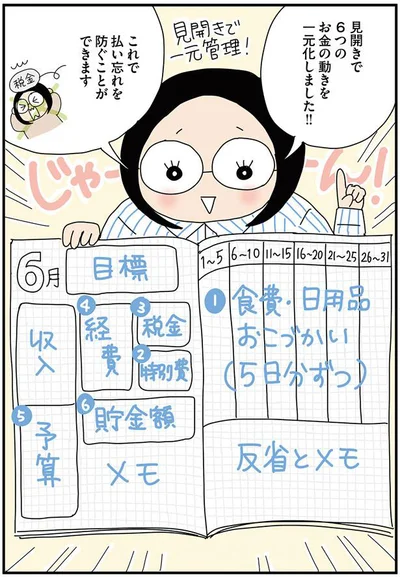 見開きで
6つの
お金の動きを
一元化しました!!
見開きで
一元管理!
これで
払い忘れを
防ぐことが
できます
税金
じゃーーん!
6月
目標
収入
4 経費
3 税金
2 特別費
5 予算
6 貯金額
メモ
1~5 6~10 11~15 16~20 21~25 26~31
1 食費・日用品
おこづかい
(5日分ずつ)
反省とメモ